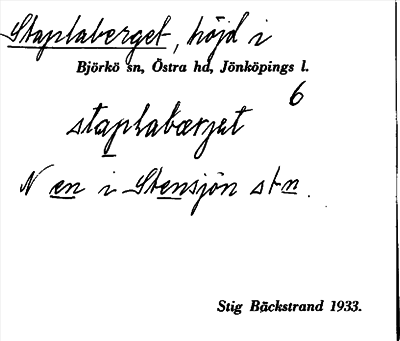 Staplaberget, höjd i
Björkö sn, Östra hd, Jönköpings l.
6
staplabærjet
N en i Stensjön st-n.
Stig Bäckstrand 1933.